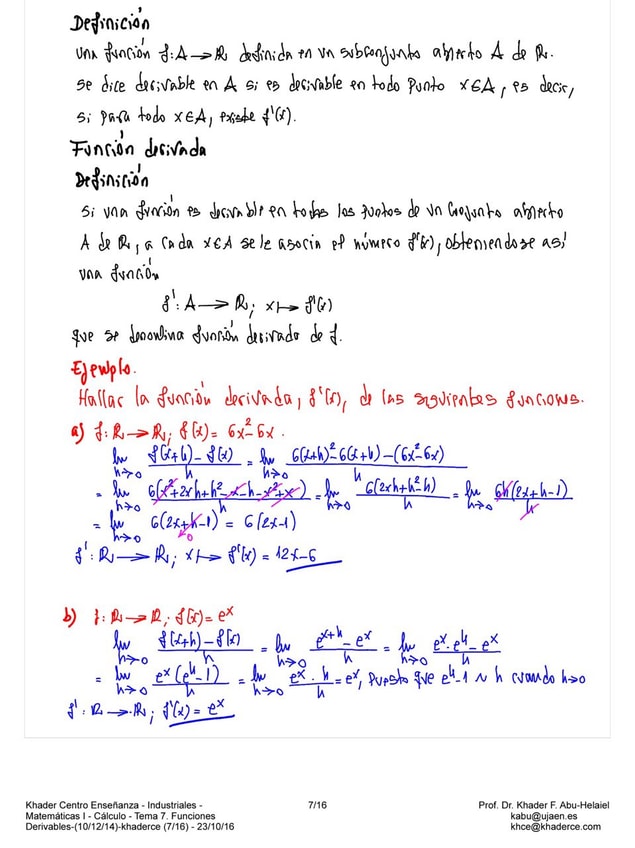 Definición
Una función f: A → ℝ definida en un subconjunto abierto A de ℝ.
se dice derivable en A si es derivable en todo punto x∈A, es decir,
si para todo x∈A, existe f'(x).
Función derivada
Definición
Si una función es derivable en todos los puntos de un conjunto abierto
A de ℝ, a cada x∈A se le asocia el número f'(x), obteniendose así
una función
f': A → ℝ; x ↦ f'(x)
que se denomina función derivada de f.
Ejemplo.
Hallar la función derivada, f'(x), de las siguientes funciones.
a) f: ℝ → ℝ; f(x) = 6x²-6x.
lim h→0 (f(x+h)-f(x))/h = lim h→0 (6(x+h)²-6(x+h)-(6x²-6x))/h
= lim h→0 6(x²+2xh+h²-x-h-x²+x)/h = lim h→0 6(2xh+h²-h)/h = lim h→0 6h(2x+h-1)/h
= lim h→0 6(2x+h-1) = 6(2x-1)
→0
f': ℝ → ℝ; x ↦ f'(x) = 12x-6
b) f: ℝ → ℝ; f(x) = eˣ
lim h→0 (f(x+h)-f(x))/h = lim h→0 (eˣ⁺ʰ-eˣ)/h = lim h→0 (eˣ·eʰ-eˣ)/h
= lim h→0 eˣ(eʰ-1)/h = lim h→0 eˣ·h/h = eˣ, puesto que eʰ-1 ~ h cuando h→0
f': ℝ → ℝ; f'(x) = eˣ
Khader Centro Enseñanza - Industriales - 7/16 Prof. Dr. Khader F. Abu-Helaiel
Matemáticas I - Cálculo - Tema 7. Funciones kabu@ujaen.es
Derivables-(10/12/14)-khaderce (7/16) - 23/10/16 khce@khaderce.com